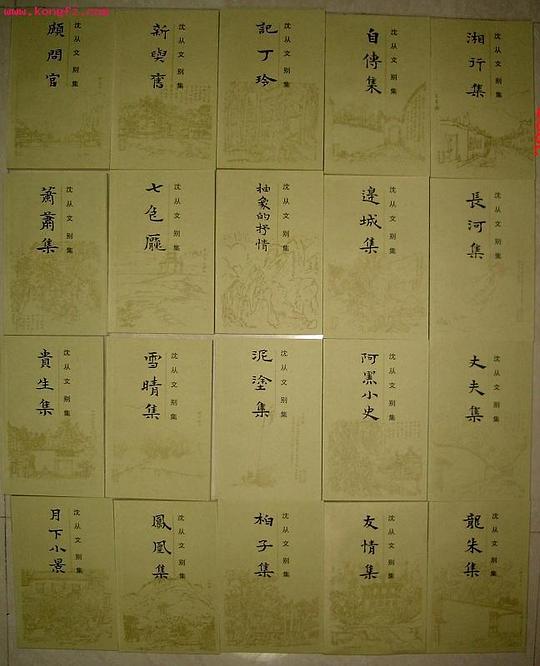 www.kongfz.com
顧問官
沈从文别集
新與舊
沈从文别集
記丁玲
沈从文别集
自傳集
沈从文别集
湘行集
沈从文别集
蕭蕭集
沈从文别集
七色魘
沈从文别集
抽象的抒情
沈从文别集
邊城集
沈从文别集
長河集
沈从文别集
貴生集
沈从文别集
雪晴集
沈从文别集
泥塗集
沈从文别集
阿黑小史
沈从文别集
丈夫集
沈从文别集
月下小景
沈从文别集
鳳凰集
沈从文别集
柏子集
沈从文别集
友情集
沈从文别集
龍朱集
沈从文别集